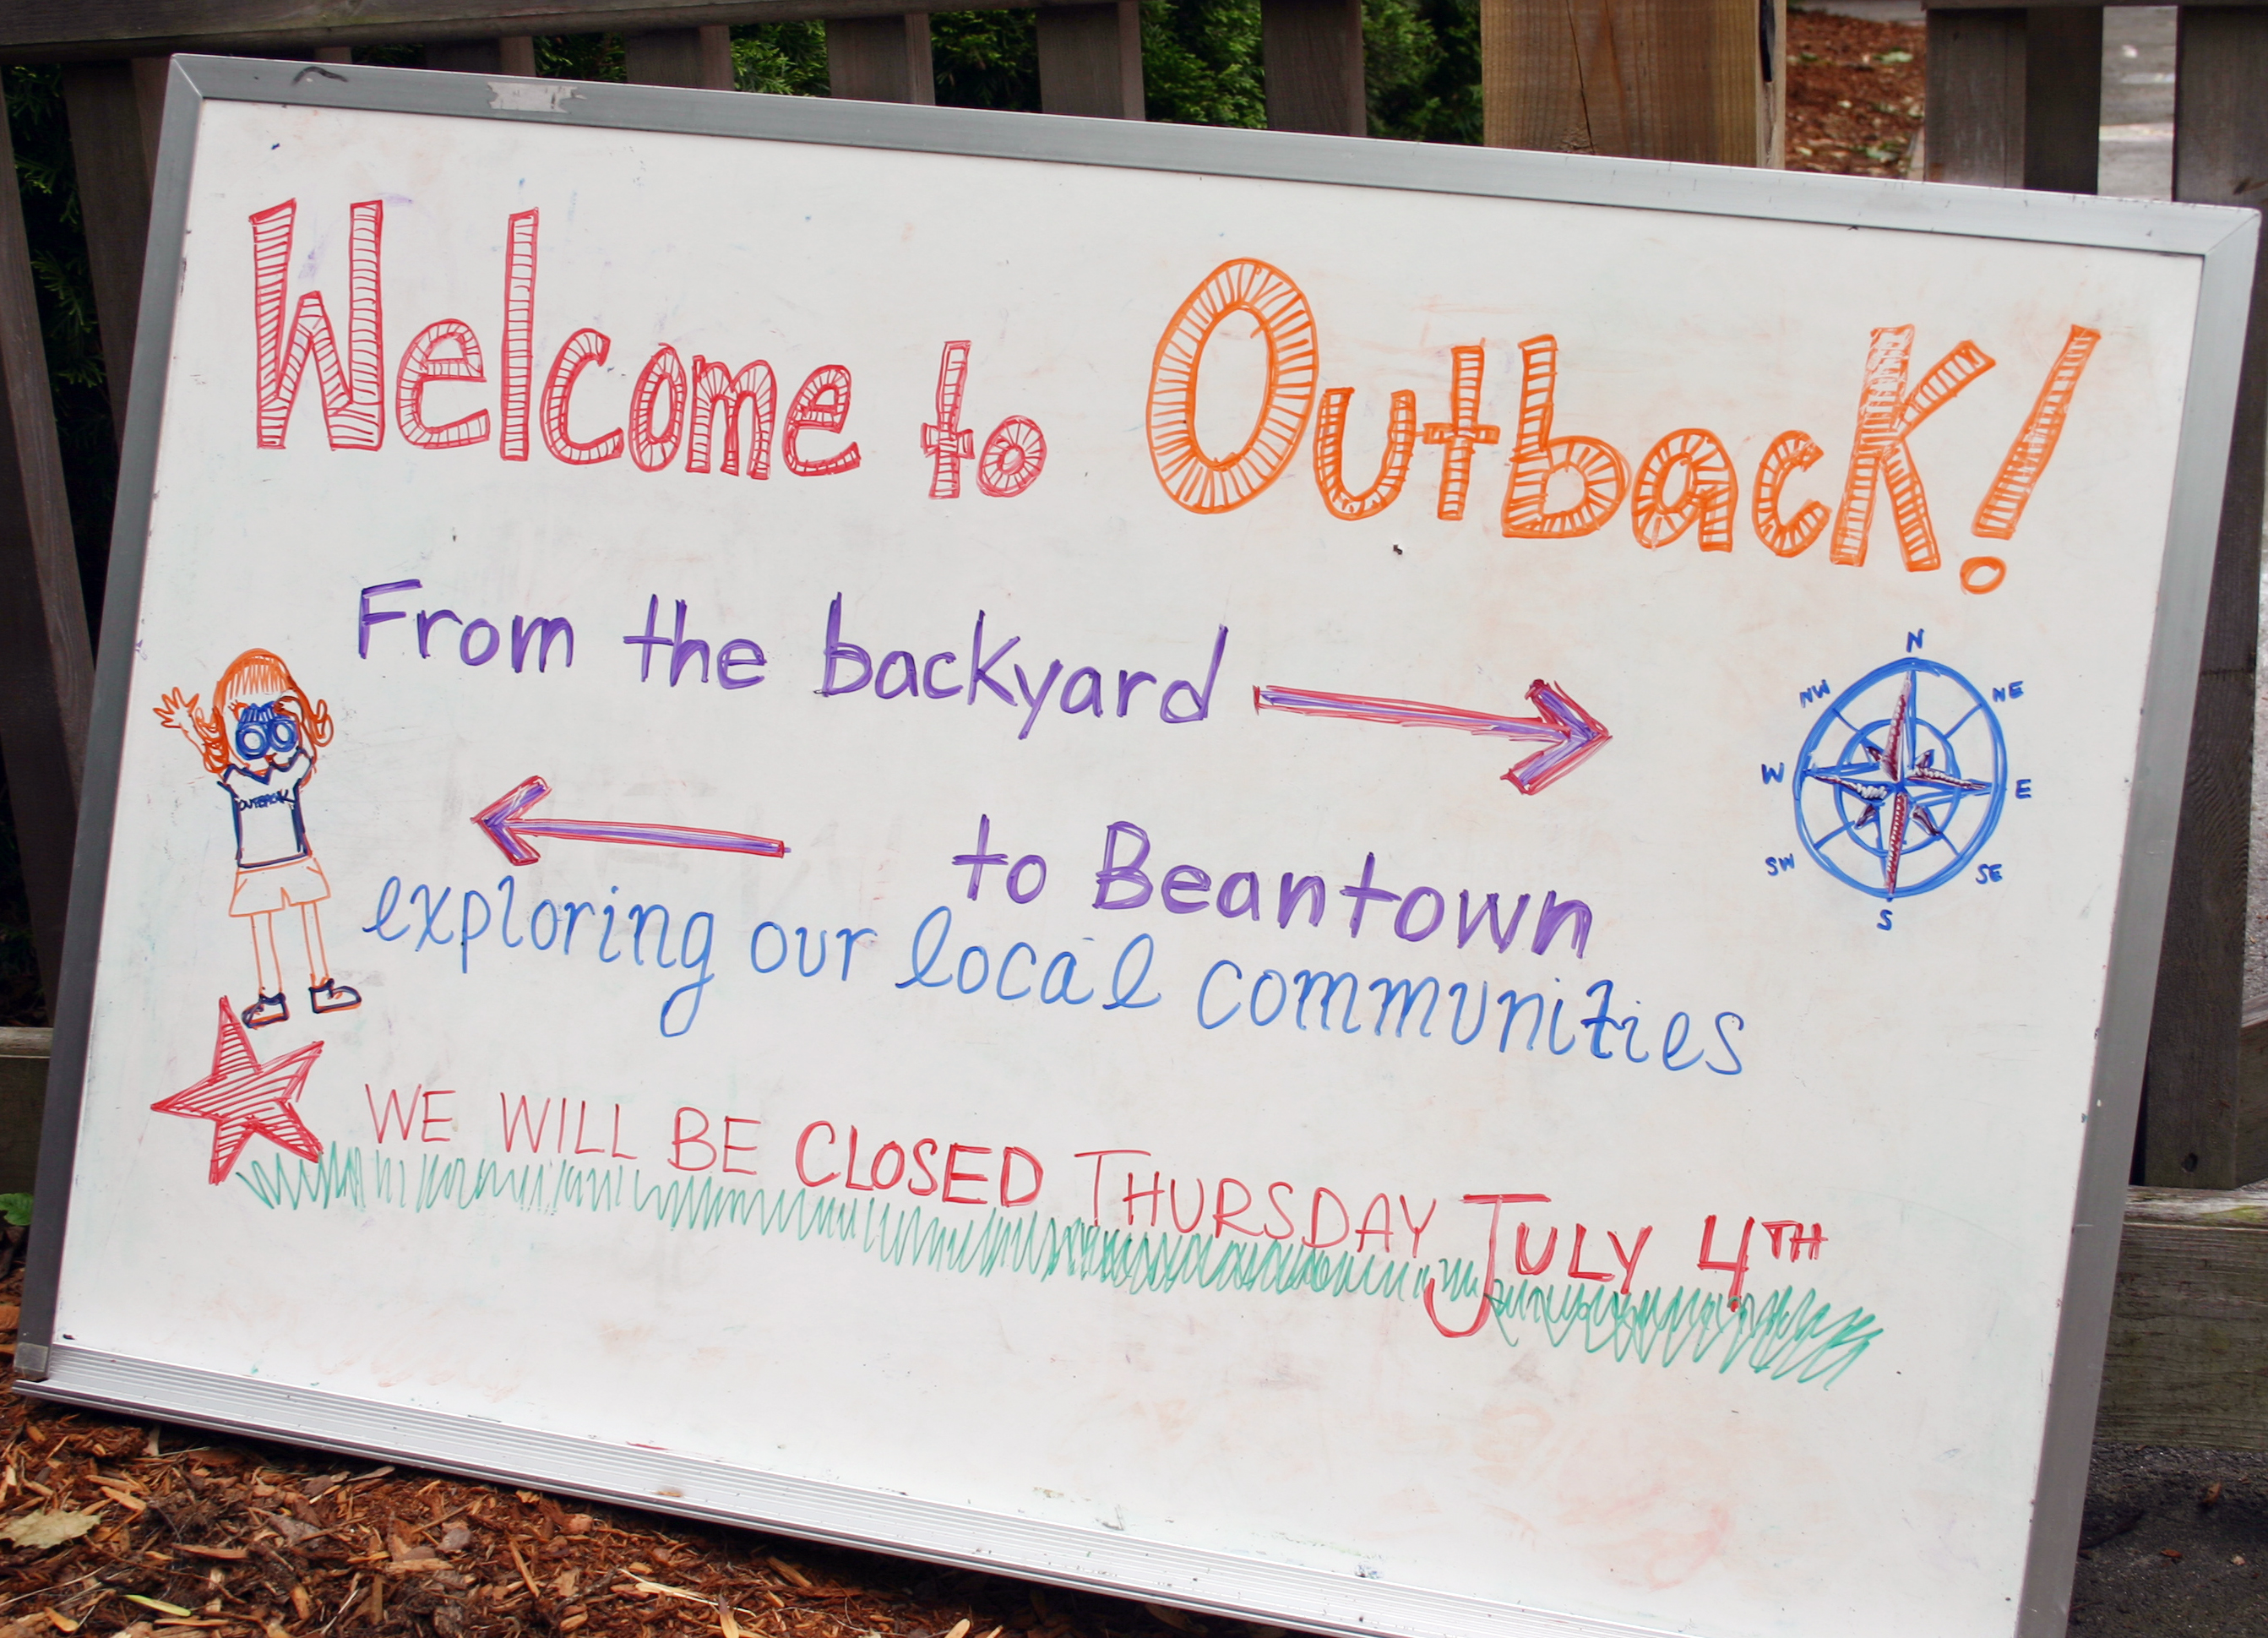 Welcome to Outback!
From the backyard
to Beantown
exploring our local communities
WE WILL BE CLOSED THURSDAY JULY 4TH
OUTBACK
N
NE
E
SE
S
SW
W
NW